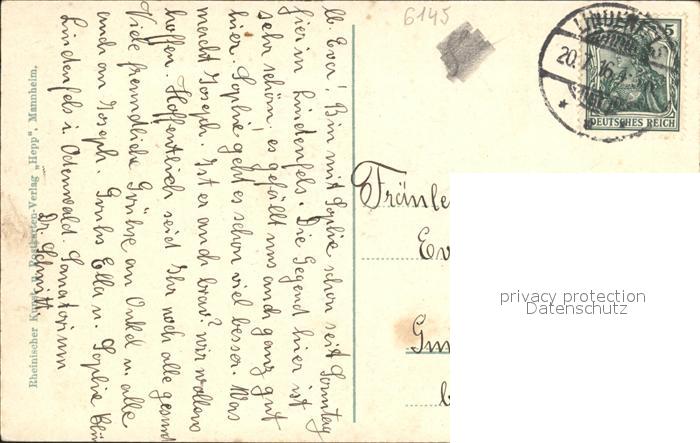 6145
LINDENF
20. 7. 16. 4
5
DEUTSCHES REICH
lb. Eva! Bin mit Sophie schon seit Sonntag
hier in Lindenfels. Die Gegend hier ist
sehr schön, es gefällt uns auch ganz gut
hier. Sophie geht es schon viel besser. Was
macht Joseph. Ist er auch brav? wir wollens
hoffen. Hoffentlich seid Ihr noch alle gesund
Viele freundliche Grüsse an Onkel u. alle
auch an Joseph. Gruss Ella u. Sophie
Lindenfels i. Odenwald. Sanatorium
Dr. Schmitt
Rheinischer Kunst- u. Postkarten-Verlag „Hepp“, Mannheim.
Fräule
Ev
Gm
privacy protection
Datenschutz